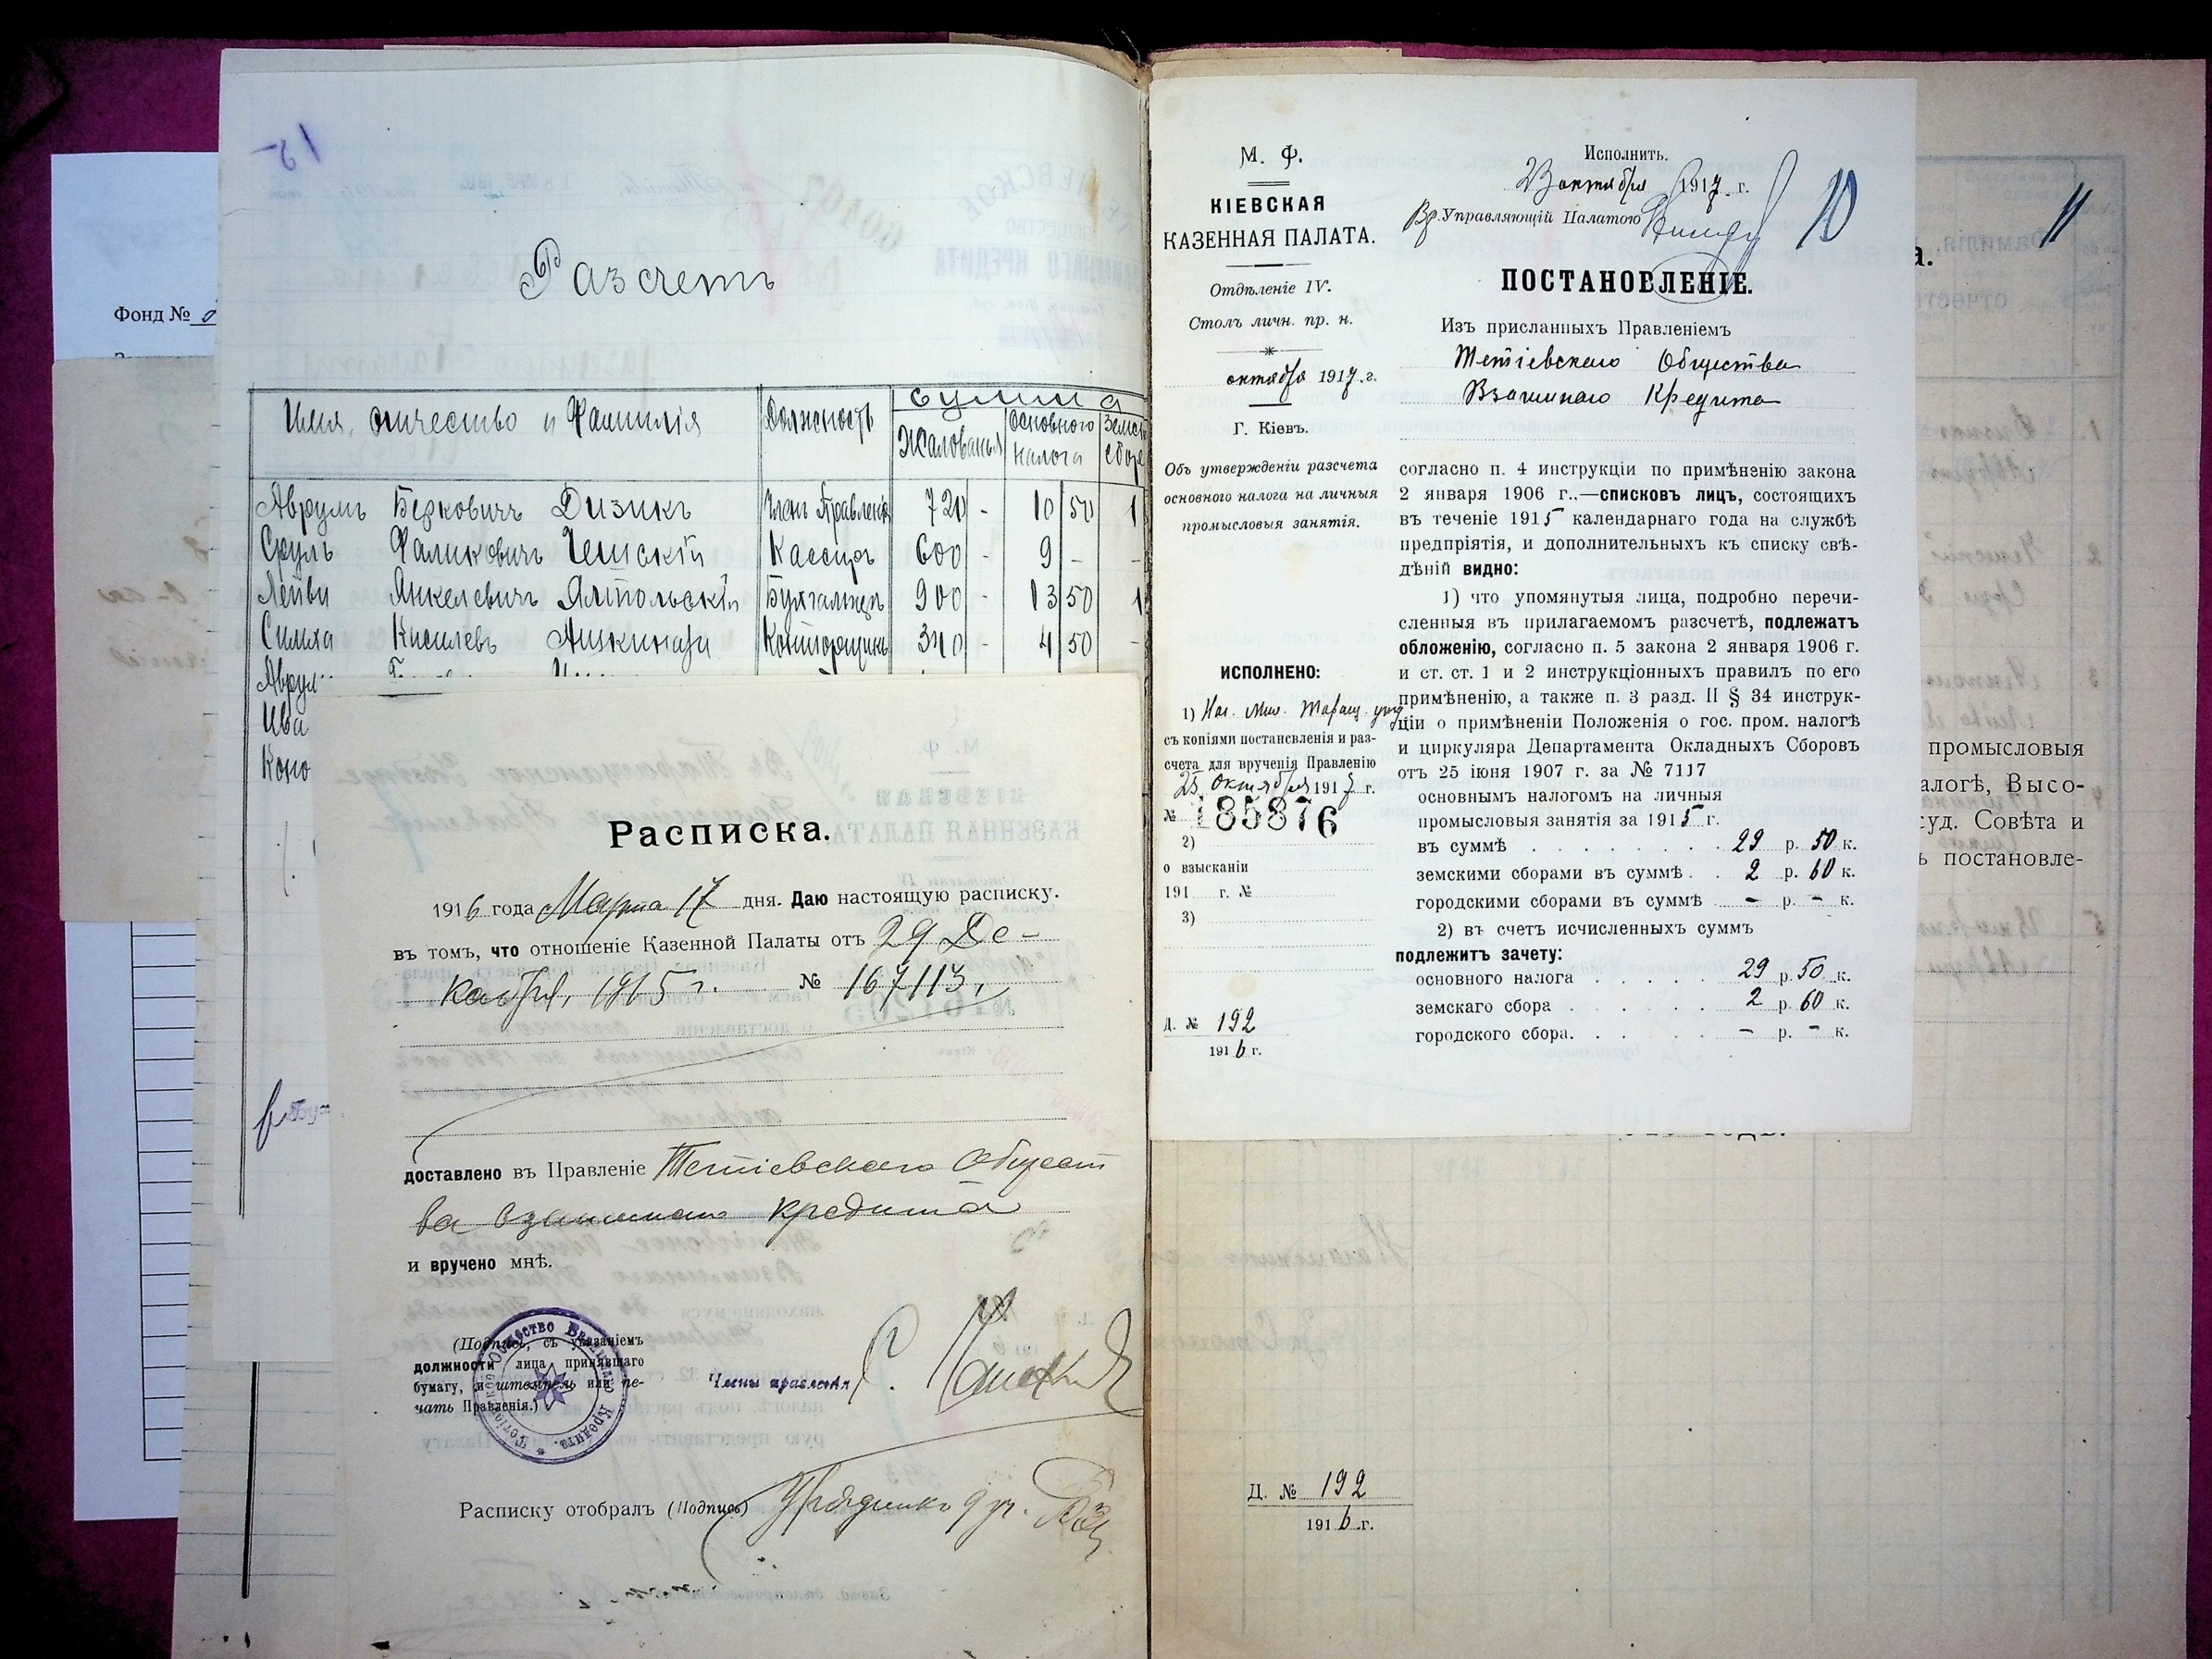 Фонд №
Разсчетъ
Имя, отчество и Фамилія
Должность
Сумма
Жалованья
Основного налога
Земск. сбора
Аврумъ Берковичъ Дизикъ Членъ Правленія 720 - 10 50 1
Сруль Фаликовичъ Чешскій Кассиръ 600 - 9 - -
Лейви Янкелевичъ Ямпольскій Бухгалтеръ 900 - 13 50 1
Симха Киселевъ Ашкинази Конторщикъ 340 - 4 50 -
Аврул
Ива
Коно
Расписка.
1916 года Марта 17 дня. Даю настоящую расписку.
въ томъ, что отношеніе Казенной Палаты отъ 29 Де-
кабря, 1915 г. № 167113,
доставлено въ Правленіе Тетіевскаго Общест
ва взаимнаго кредита
и вручено мнѣ.
(Подпись, съ указаніемъ
должности лица принявшаго
бумагу, и штемпель или пе-
чать Правленія.)
Члены правленія
Расписку отобралъ (Подпись) Урядникъ 9 уч.
М. Ф.
КІЕВСКАЯ
КАЗЕННАЯ ПАЛАТА.
Отдѣленіе IV.
Столъ личн. пр. н.
октября 1917 г.
Г. Кіевъ.
Объ утвержденіи разсчета
основного налога на личныя
промысловыя занятія.
ИСПОЛНЕНО:
1) Наг. Мин. Таращ. уѣзд
съ копіями постановленія и раз-
счета для врученія Правленію
25 октября 1917 г.
№ 185876
2)
о взысканіи
191 г. №
3)
Д. № 192
1916 г.
Исполнить.
23 октября 1917 г.
Вр. Управляющій Палатою
10
ПОСТАНОВЛЕНІЕ.
Изъ присланныхъ Правленіемъ
Тетіевскаго Общества
Взаимнаго Кредита
согласно п. 4 инструкціи по примѣненію закона
2 января 1906 г..—списковъ лицъ, состоящихъ
въ теченіе 1915 календарнаго года на службѣ
предпріятія, и дополнительныхъ къ списку свѣ-
дѣній видно:
1) что упомянутыя лица, подробно перечи-
сленныя въ прилагаемомъ разсчетѣ, подлежатъ
обложенію, согласно п. 5 закона 2 января 1906 г.
и ст. ст. 1 и 2 инструкціонныхъ правилъ по его
примѣненію, а также п. 3 разд. II § 34 инструк-
ціи о примѣненіи Положенія о гос. пром. налогѣ
и циркуляра Департамента Окладныхъ Сборовъ
отъ 25 іюня 1907 г. за № 7117
основнымъ налогомъ на личныя
промысловыя занятія за 1915 г.
въ суммѣ 29 р. 50 к.
земскими сборами въ суммѣ 2 р. 60 к.
городскими сборами въ суммѣ — р. — к.
2) въ счетъ исчисленныхъ суммъ
подлежитъ зачету:
основного налога 29 р. 50 к.
земскаго сбора 2 р. 60 к.
городского сбора — р. — к.
11
а.
промысловыя
алогѣ, Высо-
суд. Совѣта и
ь постановле-
Д. № 192
1916 г.